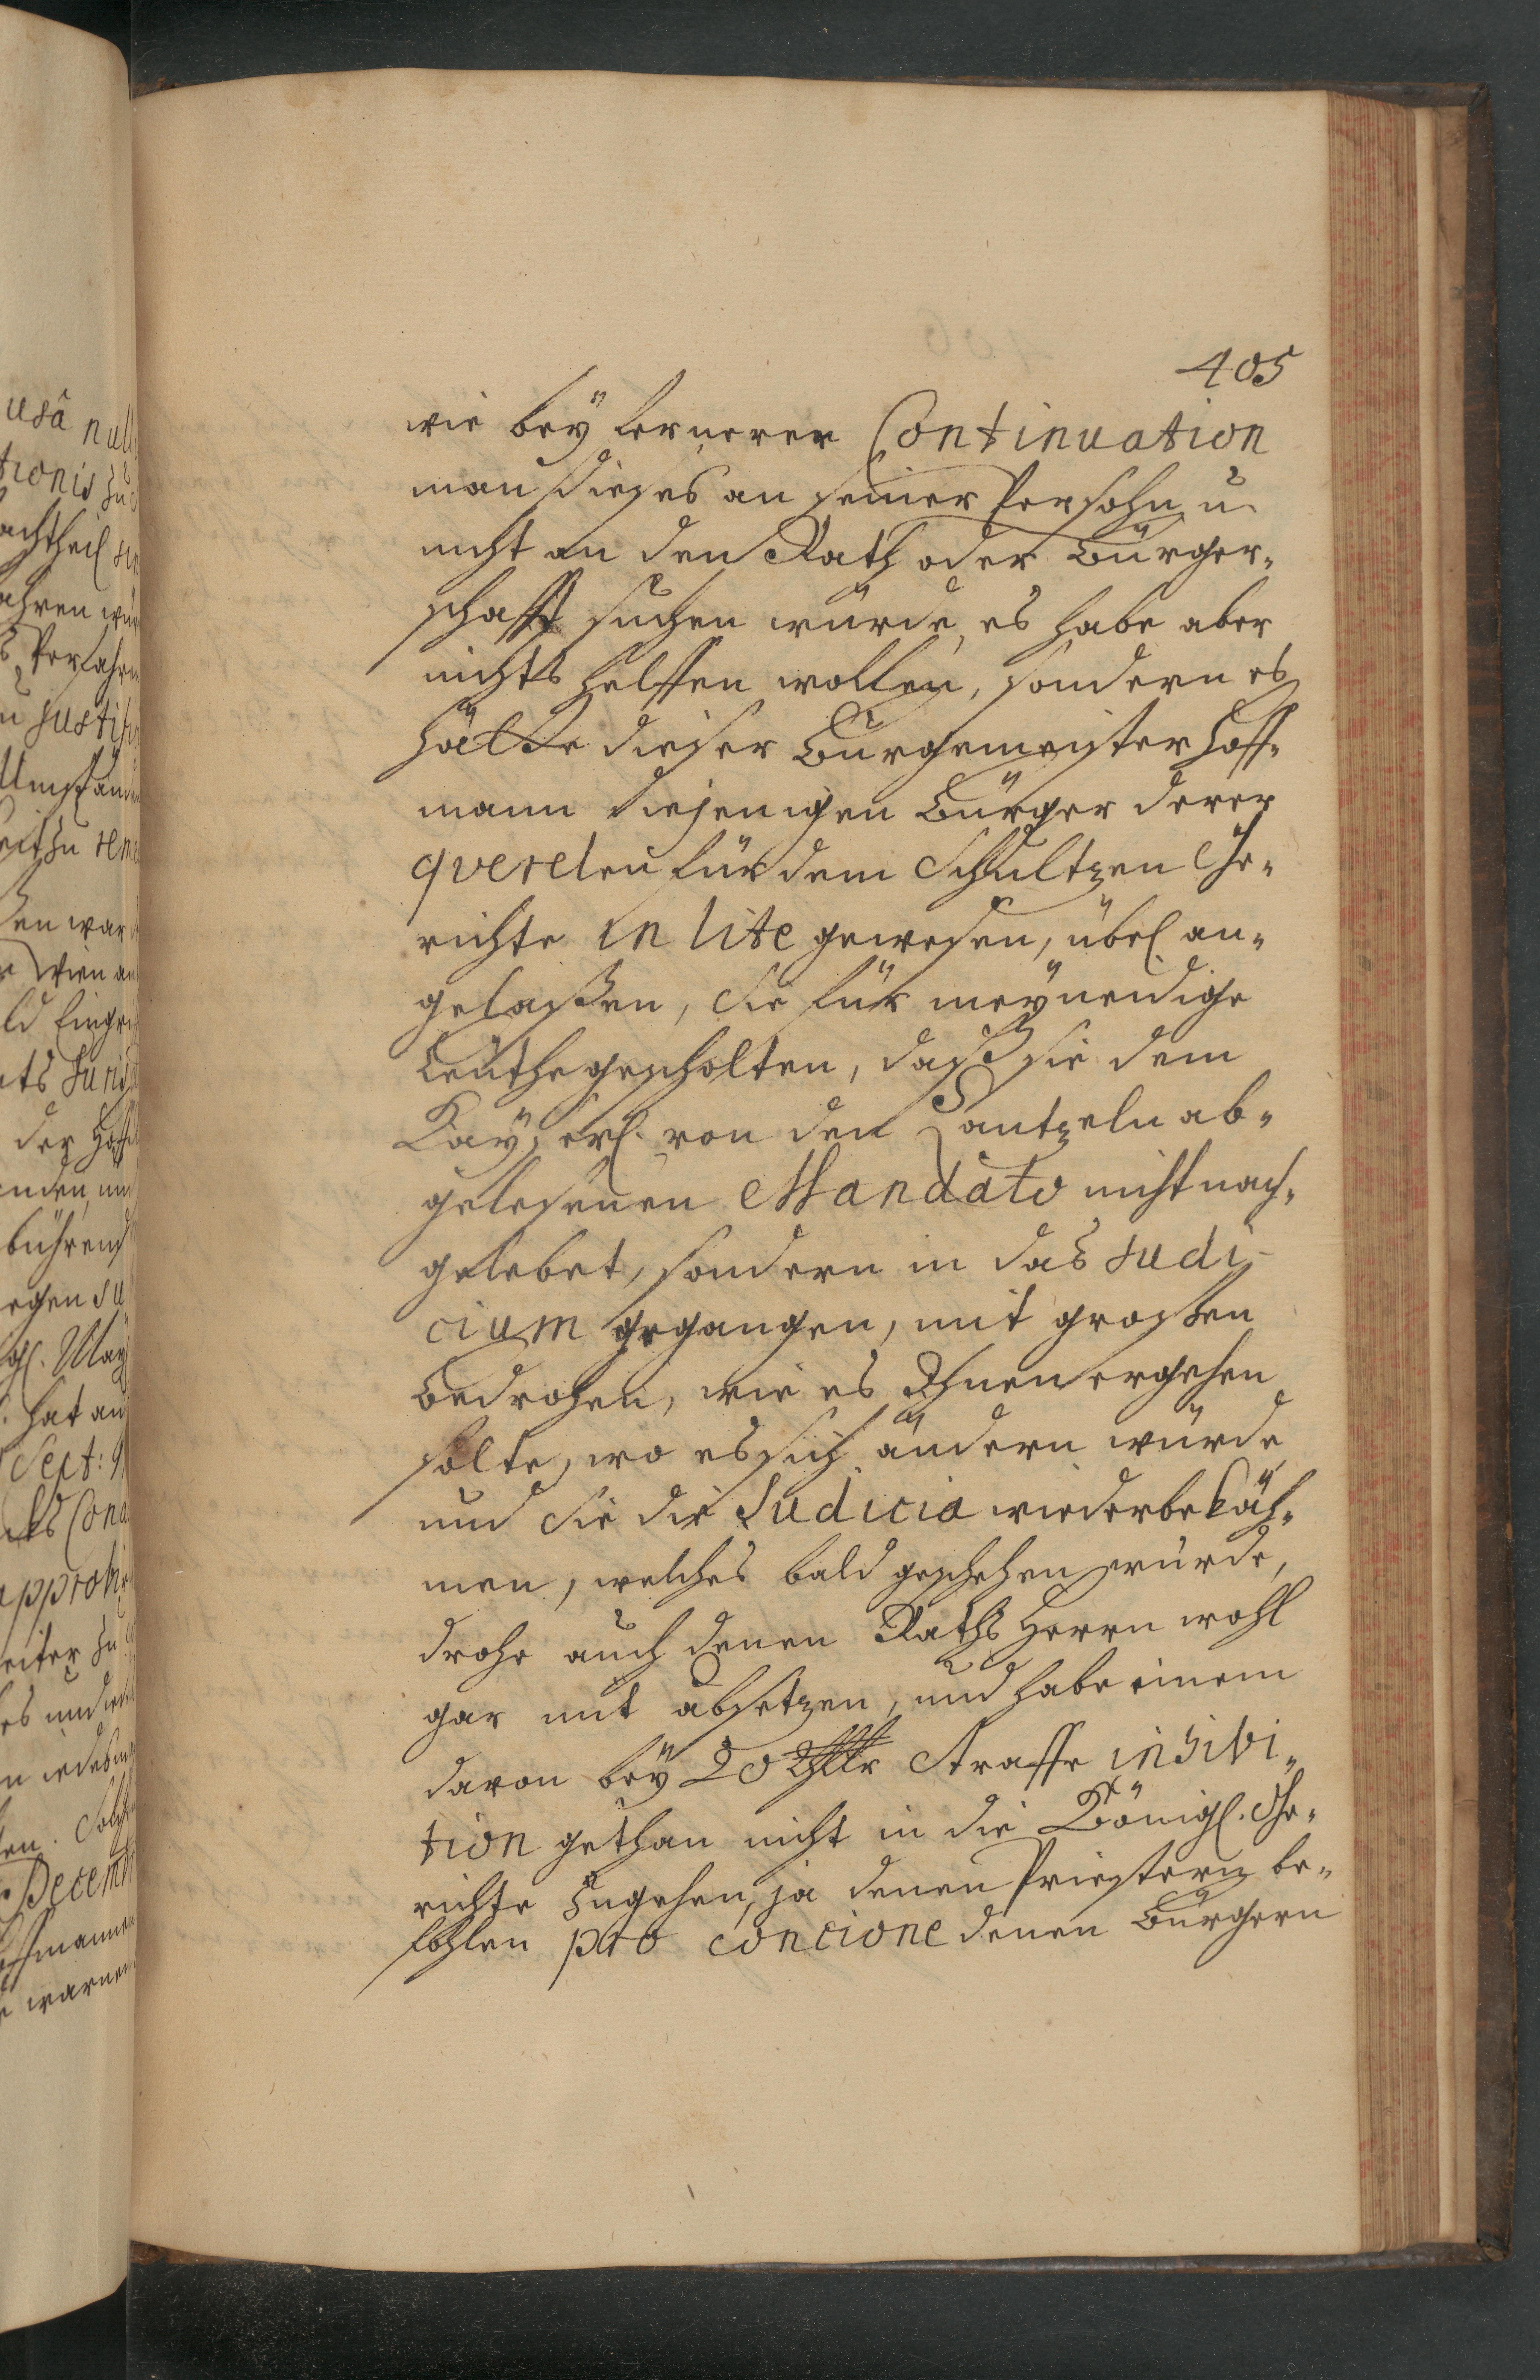 405
wie bey fernerer Continuation
man dieses an seiner Persohn u.
nicht an den Rath oder Bürger-
schafft suchen würde, es habe aber
nichts helffen wollen, sondern es
hätte dieser Bürgemeister Hoff-
mann diejenigen Bürger derer
querelen für dem Schultzen Ge-
richte in lite gewesen, übel an-
gelaßen, Sie für meyneidige
Leuthe gescholten, daß sie dem
Kayserl. von den Cantzeln ab-
gelesenen Mandato nicht nach-
gelebet, sondern in das Judi-
cium gegangen, mit großen
Bedrohen, wie es Ihnen ergehen
solte, wo es sich ändern würde
und Sie die Judicia wiederbekäh-
men, welches bald geschehen würde,
drohe auch denen Raths Herrn wohl
gar mit absetzen, und habe einem
davon bey 20 Thlr Straffe inhibi-
tion gethan nicht in die Königl. Ge-
richte zugehen, ja denen Priestern be-
fohlen pro concione denen Bürgern